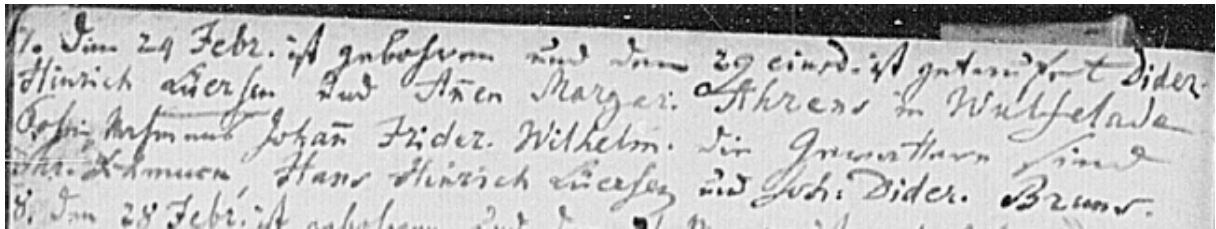 7. Den 24 Febr. ist gebohren und den 29 eiusd. ist getaufet Dider.
Hinrich Lüersen und Annen Margar. Ahrens in Wulfelade
Sohn, Nahmens Johann Frider. Wilhelm. die Gevattern sind
Hans Hinrich Lüersen und Joh. Dider. Bruns.
8. den 28 Febr. ist gebohren und den